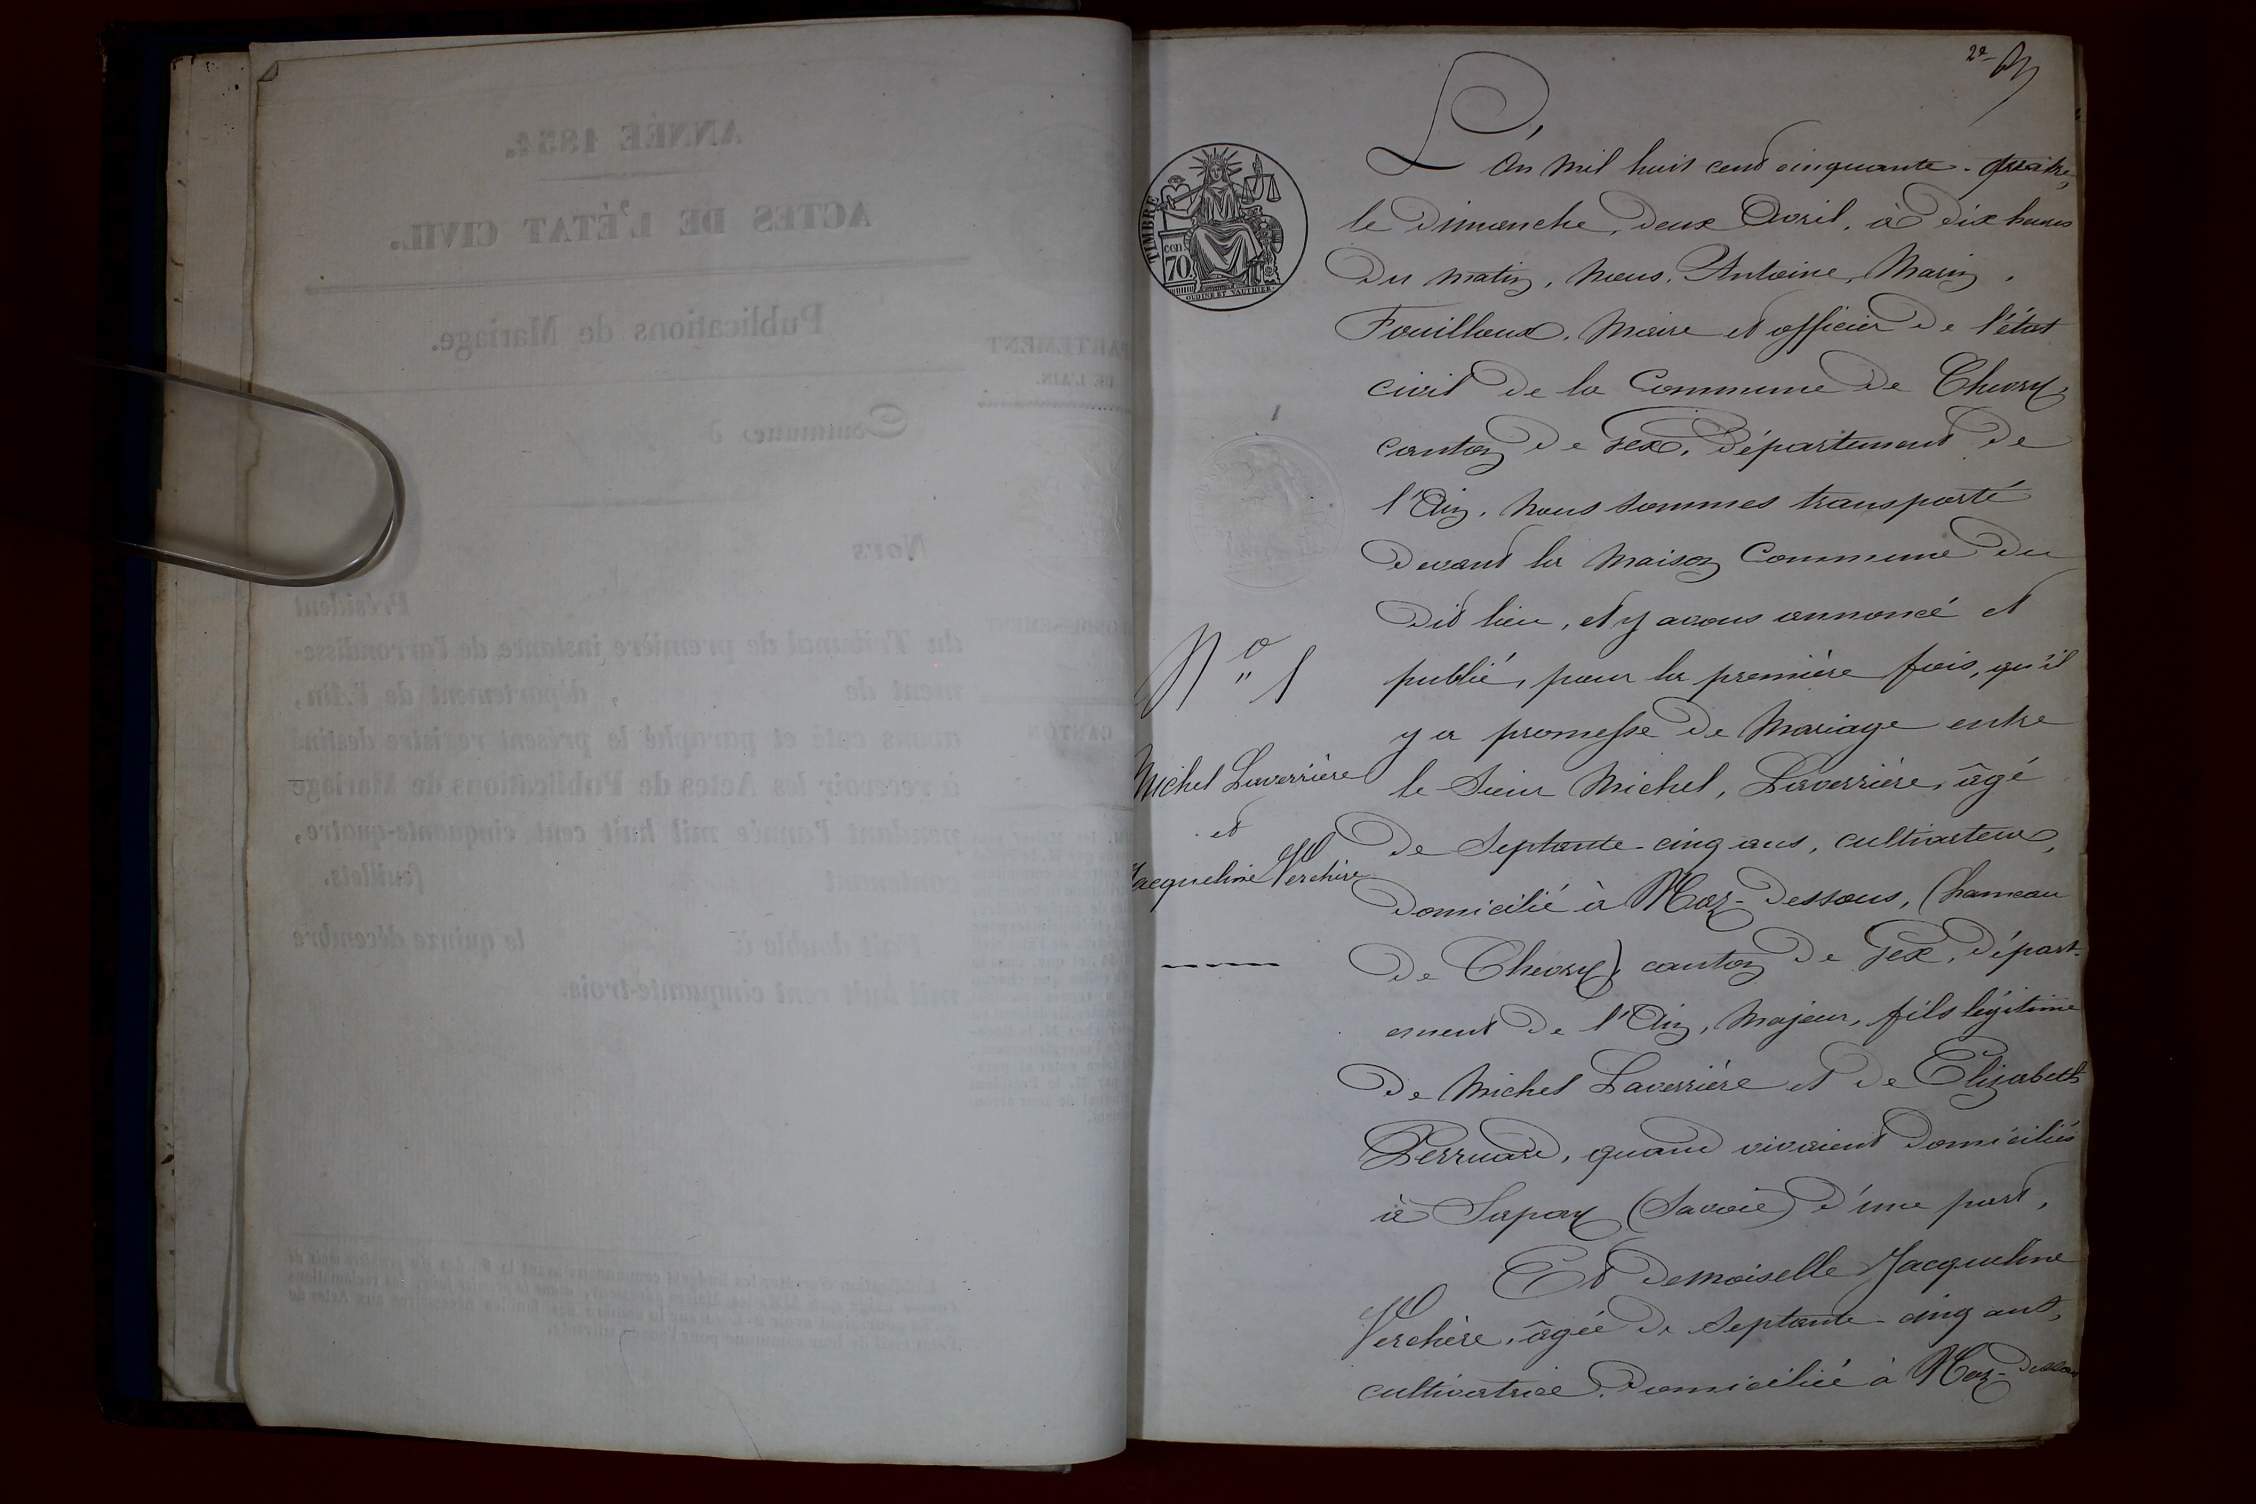 2e
L'An mil huit cent cinquante-quatre,
le Dimanche, deux Avril, à dix heures
du matin, nous, Antoine, Marin,
Fouilloux, Maire et officier de l'état
civil de la Commune de Chevry,
canton de Gex, Département de
l'Ain, nous sommes transporté
devant la Maison Commune du
dit lieu, et y avons annoncé et
publié, pour la première fois, qu'il
y a promesse de Mariage entre
le Sieur Michel, Laverrière, âgé
de Septante-cinq ans, cultivateur,
domicilié à Naz-dessous, (hameau
de Chevry) canton de Gex, départ-
ement de l'Ain, Majeur, fils légitime
de Michel Laverrière et de Elizabeth
Perruard, quand vivaient domiciliés
à Sapey (Savoie) d'une part,
Et demoiselle Jacqueline
Verchère, âgée de Septante-cinq ans,
cultivatrice, domiciliée à Naz-dessous
TIMBRE
cen
70
OUDINÉ ET VAUTHIER
No 1
Michel Laverrière
et
Jacqueline Verchère
ANNÉE 1854.
ACTES DE L'ÉTAT CIVIL.
Publications de Mariage.
Commune d
Nous
Président
du Tribunal de première instance de l'arrondisse-
ment de , département de l'Ain,
avons coté et paraphé le présent registre destiné
à recevoir les Actes de Publications de Mariage
pendant l'année mil huit cent cinquante-quatre,
contenant feuillets.
Fait double à le quinze décembre
mil huit cent cinquante-trois.
DE L'AIN.
CANTON